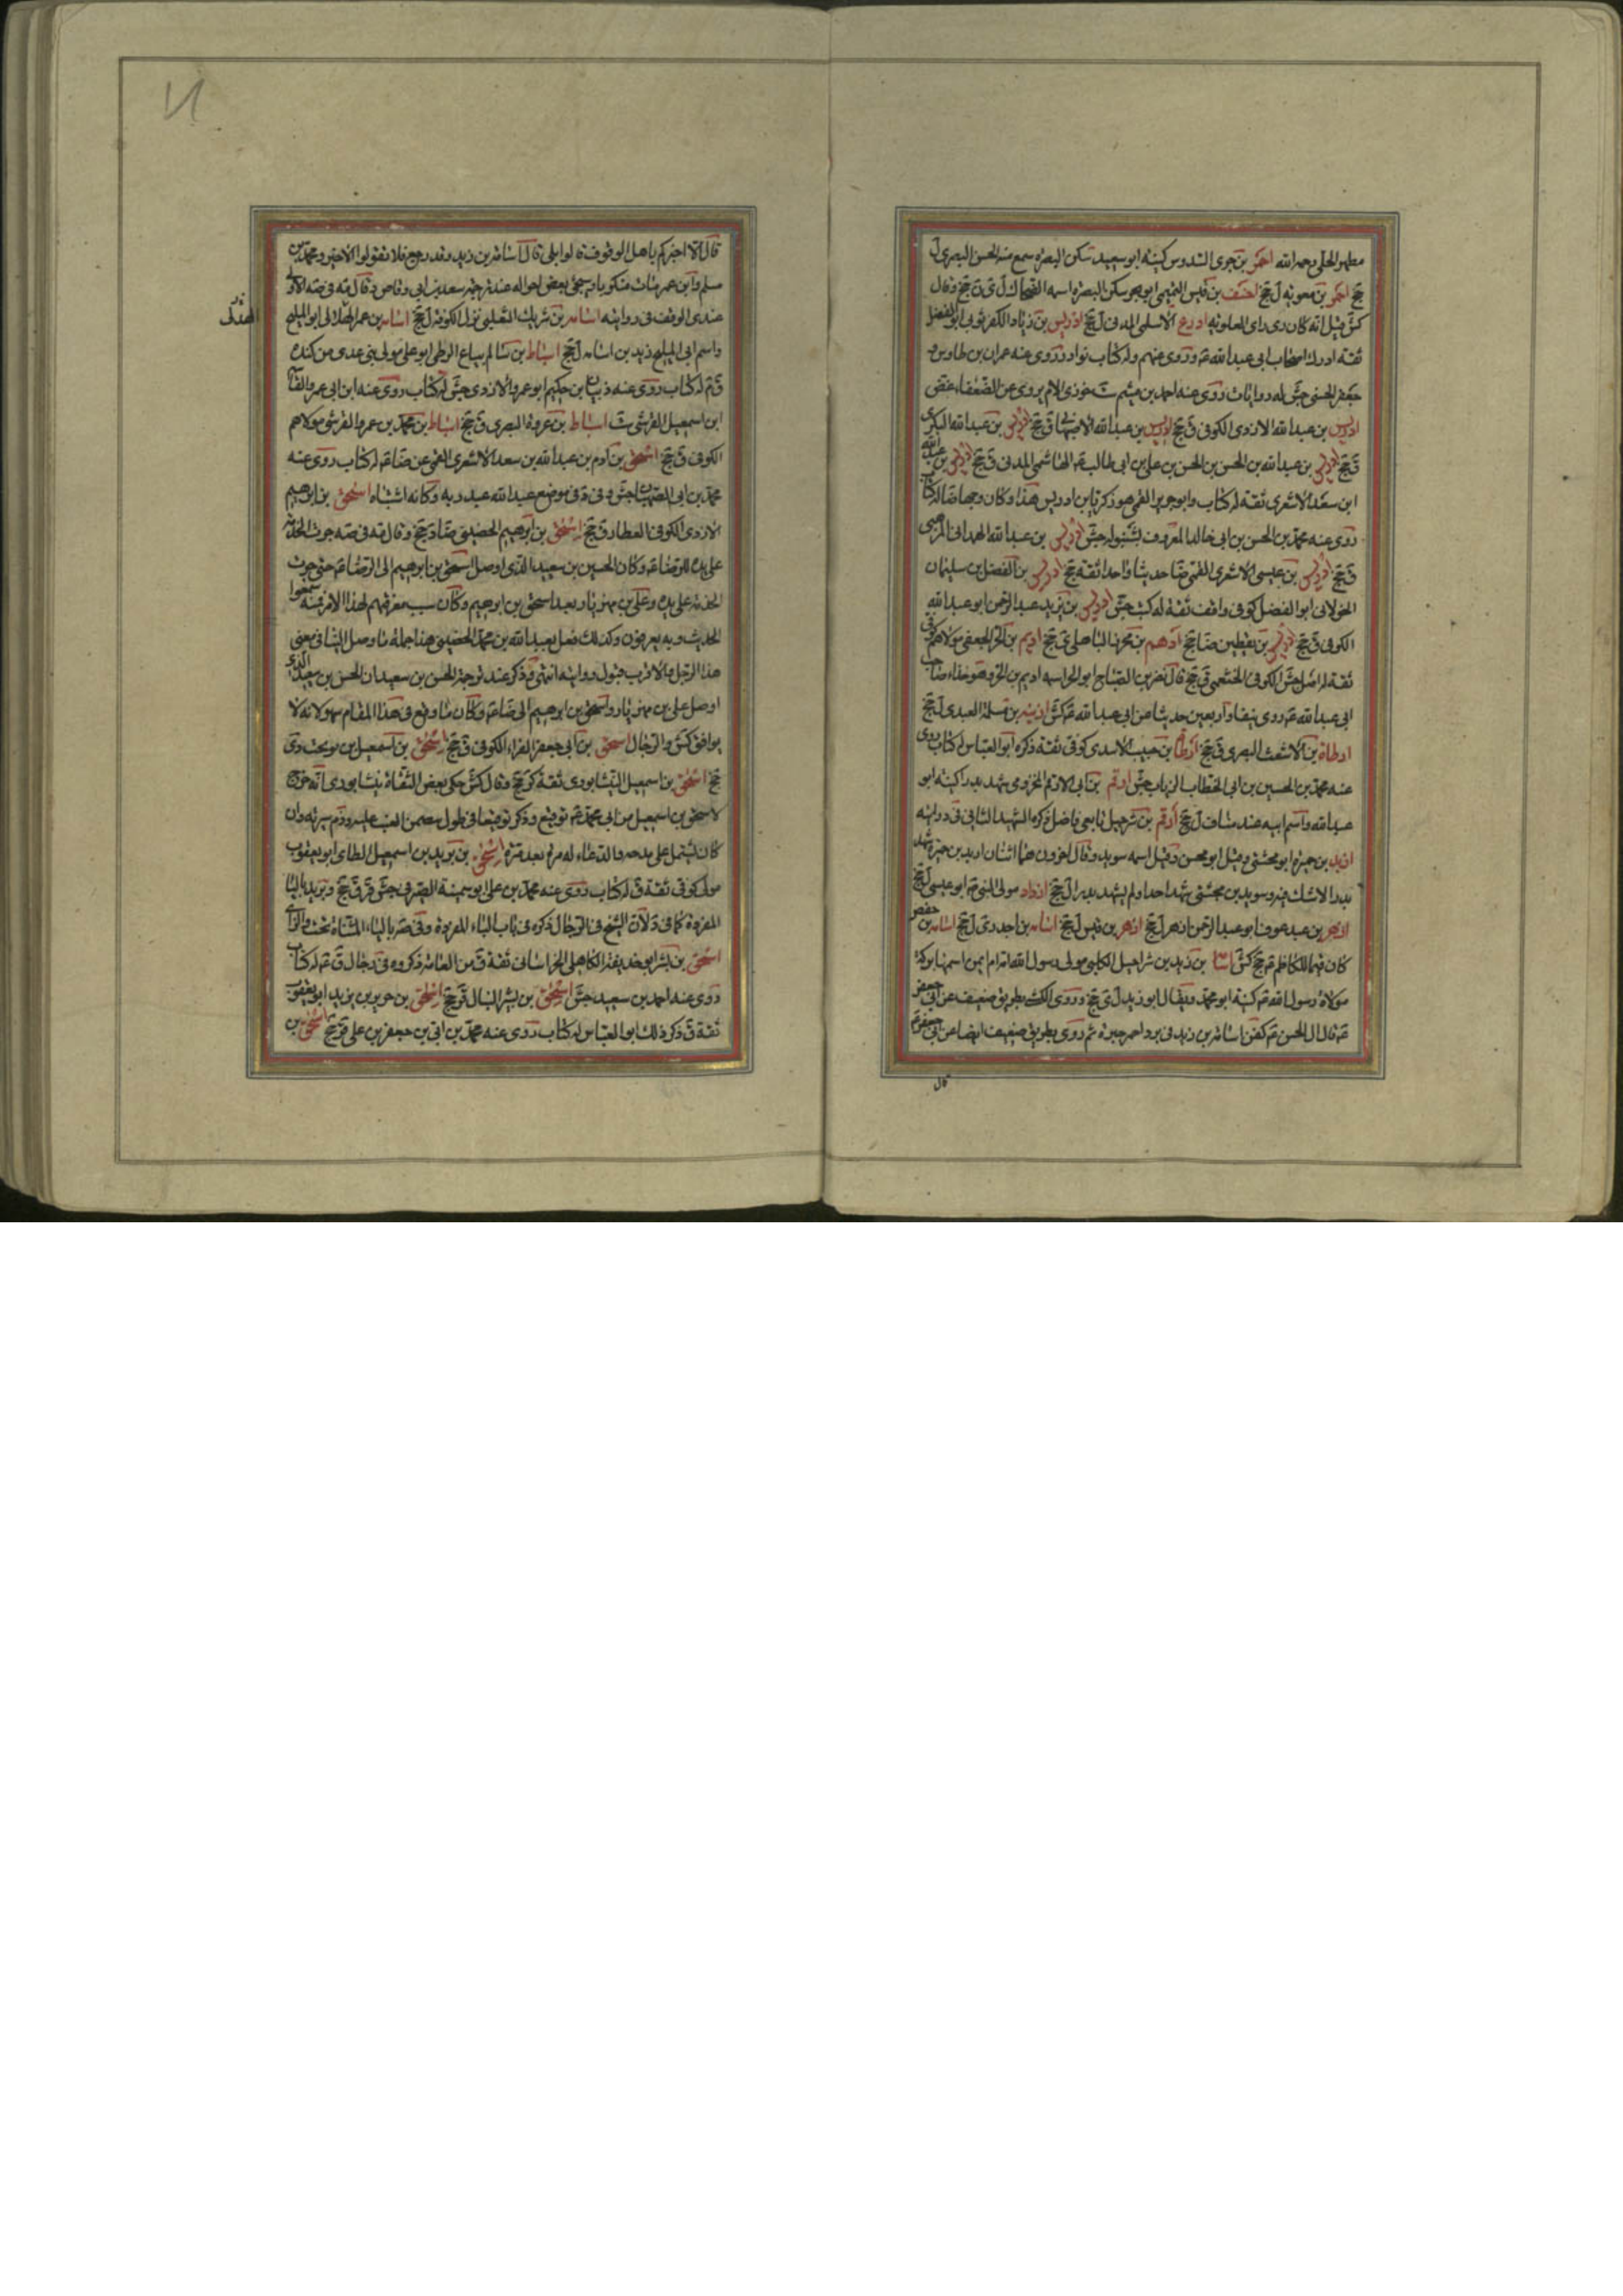 مطهر الحلي رحمه الله احمر بن جرى السدوس كنيته ابو سعيد سكن البصره سمع منه الحسن البصرى ل
جخ احمر بن معويه ل جخ احنف بن قيس التميمى ابو بحر سكن البصره اسمه الضحاك ل ى ن جخ وقال
كش قيل انه كان يرى راى العلويه ادرع الاسلمى المدنى ل جخ ادريس بن زياد الكفرثوبى ابو الفضل
ثقة ادرك اصحاب ابى عبد الله ع وروى عنهم وله كتاب نوادر روى عنه عمران بن طاوس
جعفر الحسنى جش له روايات روى عنه احمد بن ميثم ست خوزى الام يروى عن الضعفاء غض
ادريس بن عبد الله الازدى الكوفى ق جخ ادريس بن عبد الله الاصفهانى ق جخ ادريس بن عبد الله البكرى
ق جخ ادريس بن عبد الله بن الحسن بن الحسن بن على بن ابى طالب ع الهاشمى المدنى ق جخ ادريس بن عبد الله
ابن سعد الاشعرى ثقة له كتاب وابو جرير القمى هو زكريا بن ادريس هذا وكان وجها ضا له كتاب
روى عنه محمد بن الحسن بن ابى خالد المعروف بشنبوله جش ادريس بن عبد الله الهمدانى المرهبى
ق جخ ادريس بن عيسى الاشعرى القمى ضا حديثا واحدا ثقة جخ ادريس بن الفضل بن سليمان
الخولانى ابو الفضل كوفى واقف ثقة له كتب جش ادريس بن يزيد عبد الرحمن ابو عبد الله
الكوفى ق جخ ادريس بن يقطين ضا جخ ادهم بن محرز الباهلى ى جخ اديم بن الحر الجعفى مولاهم كوفى
ثقة له اصل جش الكوفى الخثعمى ق جخ قال نصر بن الصباح ابو الحر اسمه اديم بن الحر وهو حذاء صاحب
ابى عبد الله ع روى نيفا واربعين حديثا عن ابى عبد الله ع كش اذينه بن مسلمة العبدى ل جخ
ارطاة بن الاشعث البصرى ق جخ ارطاة بن حبيب الاسدى كوفى ثقة ذكره ابو العباس له كتاب روى
عنه محمد بن الحسين بن ابى الخطاب الزيات جش ارقم بن ابى الارقم المخزومى شهد بدرا كنيته ابو
عبد الله واسم ابيه عند مناف ل جخ ارقم بن شرحبيل تابعى فاضل ذكره الشهيد الثانى فى درايته
اربد بن حميره ابو مخشى وقيل ابو محسن وقيل اسمه سويد وقال اخرون هما اثنان اربد بن حميره شهد
بدرا لاشك فيه وسويد بن مخشى شهد احدا ولم يشهد بدرا ل جخ ازداد مولى النبى ص ابو عيسى ل جخ
ازهر بن عبد عوف ابو عبد الرحمن ازهر ل جخ ازهر بن قيس ل جخ اسامه بن احدرى ل جخ اسامه بن حفص
كان قيما للكاظم ع جخ كش اسامه بن زيد بن شراحيل الكلبى مولى رسول الله ص امه ام ايمن اسمها بركة
مولاة رسول الله ص كنيته ابو محمد ويقال ابو زيد ل ى جخ وروى الكشى بطريق ضعيف عن ابى جعفر
ع قال ان الحسن ع كفن اسامه بن زيد فى برد احمر حبرة ثم روى بطريق ضعيف ايضا عن ابى جعفر ع
قال
قال الا اخبركم باهل الوقوف قالوا بلى قال اسامه بن زيد وقد رجع فلا تقولوا الا خيرا ومحمد بن
مسلم وابن عمر مات منكوبا وسيجئ بعض احواله عند ترجمة سعد بن ابى وقاص وقال مه فى صه الاولى
عندى الوقف فى روايته اسامه بن شريك الثعلبى نزل الكوفة ل جخ اسامه بن عمر الهذلى ابو المليح
الهذلى
واسم ابى المليح زيد بن اسامه ل جخ اسباط بن سالم بياع الزطى ابو على مولى بنى عدى من كنده
ق م له كتاب روى عنه ذبيان بن حكيم ابو عمرو الازدى جش له كتاب روى عنه ابن ابى عمير والقاسم
ابن اسمعيل القرشى ست اسباط بن عروة البصرى ق جخ اسباط بن محمد بن عمرو القرشى مولاهم
الكوفى ق جخ اسحق بن ادم بن عبد الله بن سعد الاشعرى القمى عن ضا ع له كتاب روى عنه
محمد بن ابى الصهبان جش وفى ق فى موضع عبد الله عبد ربه وكانه اشتباه اسحق بن ابرهيم
الازدى الكوفى العطار ق جخ اسحق بن ابرهيم الحضينى ضا د جخ وقال مه فى صه جرت الخدمة
على يده للرضا ع وكان الحسين بن سعيد الذى اوصل اسحق بن ابرهيم الى الرضا ع حتى جرت
الخدمة على يده وعلى بن مهزيار بعد اسحق بن ابرهيم وكان سبب معرفتهم لهذا الامر ومنه سمعوا
الحديث وبه يعرفون وكذلك فعل بعبد الله بن محمد الحضينى هذا جملة ما وصل الينا فى معنى
هذا الرجل والاقرب قبول روايته انتهى وذكر عند ترجمة الحسن بن سعيد ان الحسن بن سعيد الذى
اوصل على بن مهزيار واسحق بن ابرهيم الى ضا ع وكان ما وقع فى هذا المقام سهو لانه لا
يوافق كش والرجال اسحق بن ابى جعفر الفراء الكوفى ق جخ اسحق بن اسمعيل بن نوبخت دى
جخ اسحق بن اسمعيل النيشابورى ثقة كر جخ وقال كش حكى بعض الثقاة بنيشابور انه خرج
لاسحق بن اسمعيل من ابى محمد ع توقيع وذكر توقيعا فى طول يتضمن العتب عليه وذم سيرته وان
كان يشتمل على مدحه والدعاء له مرة بعد مرة اسحق بن بريد بن اسمعيل الطائى ابو يعقوب
مولى كوفى ثقة ق له كتاب روى عنه محمد بن على ابو سمينة الصيرفى جش قر ق جخ وبريد بالباء
المفردة كما فى د لان الشيخ فى الرجال ذكره فى باب الباء المفردة وفى صه بالياء المثناة تحت والزاى
اسحق بن بشر ابو حذيفة الكاهلى الخراسانى ثقة ق من العامة ذكروه فى رجال ق ع له كتاب
روى عنه احمد بن سعيد جش اسحق بن بشر النبال ق جخ اسحق بن جرير بن يزيد ابو يعقوب
ثقة ق ذكر ذلك ابو العباس له كتاب روى عنه محمد بن ابى بن جعفر بن على ق جخ اسحق بن